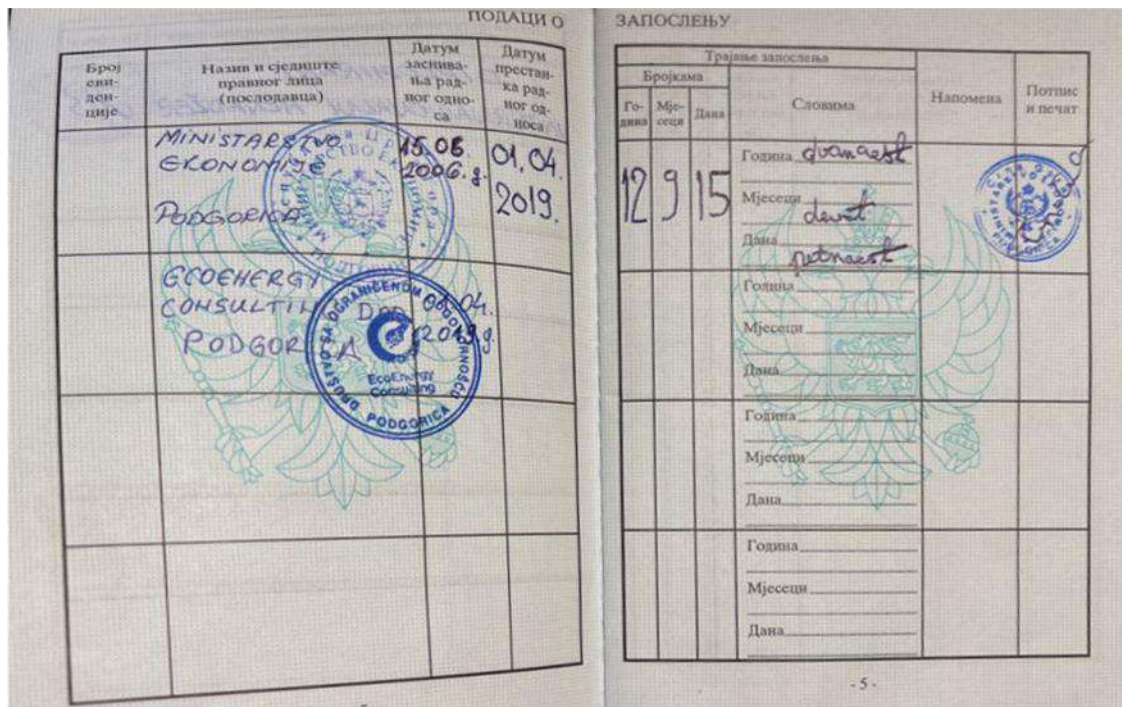 ПОДАЦИ О ЗАПОСЛЕЊУ
Број еви-
ден-
ције
Назив и сједиште
правног лица
(послодавца)
Датум
заснива-
ња рад-
ног одно-
са
Датум
престан-
ка рад-
ног од-
носа
MINISTARSTVO
EKONOMIJE
PODGORICA
15.06.
2006.g.
01.04.
2019.
ECOENERGY
CONSULTING DOO
PODGORICA
01.04.
2019g.
DRUŠTVO SA OGRANIČENOM ODGOVORNOŠĆU
EcoEnergy
Consulting
PODGORICA
Трајање запослења
Бројкама
Го-
дина
Мје-
сеци
Дана
Словима
Напомена
Потпис
и печат
12 9 15
Година dvanaest
Мјесеци devet
Дана petnaest
Година
Мјесеци
Дана
Година
Мјесеци
Дана
Година
Мјесеци
Дана
- 5 -